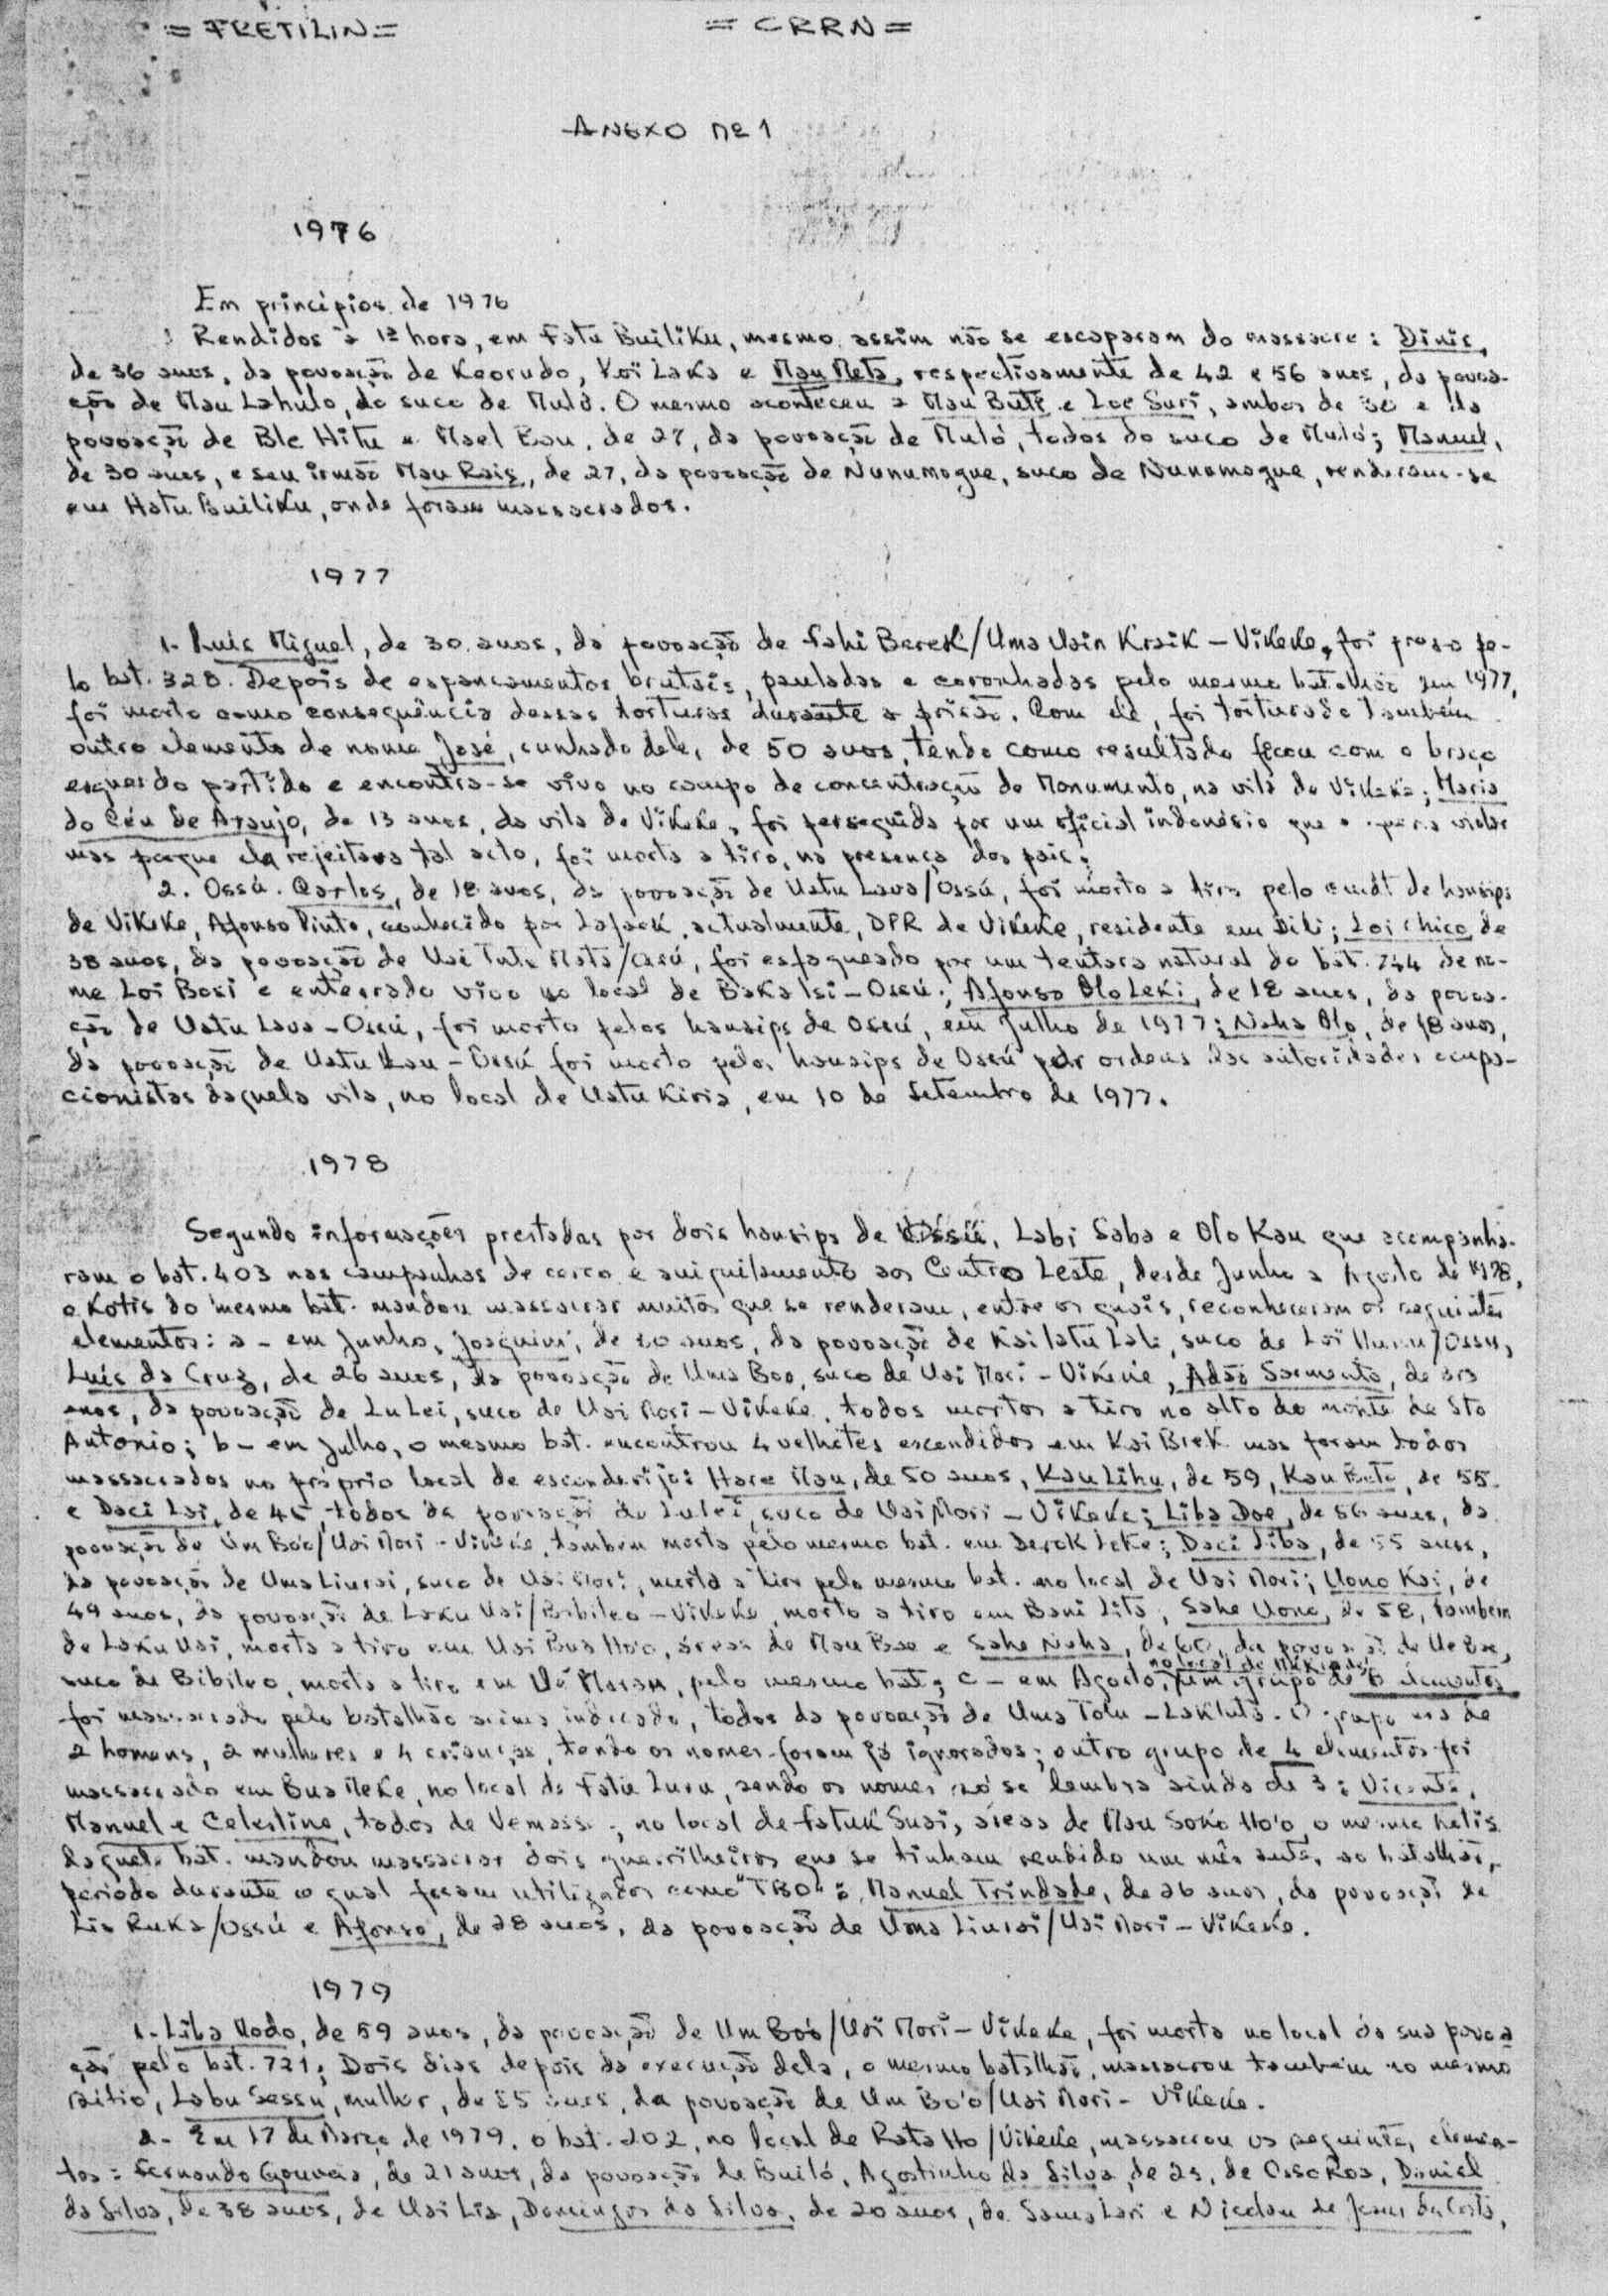 = FRETILIN = = CRRN =
ANEXO Nº 1
1976
Em princípios de 1976
Rendidos à 1ª hora, em Fatu Builiku, mesmo assim não se escaparam do massacre: Dinis,
de 36 anos, da povoação de Keorudo, Koi Laka e Mau Meta, respectivamente de 42 e 56 anos, da povoa-
ção de Mau Lahulo, do suco de Muló. O mesmo aconteceu a Mau Bute e Loe Suri, ambos de e da
povoação de Ble Hitu e Mael Bau, de 27, da povoação de Muló, todos do suco de Muló; Manuel,
de 30 anos, e seu irmão Mau Rais, de 27, da povoação de Nunumogue, suco de Nunumogue, renderam-se
em Hatu Builiku, onde foram massacrados.
1977
1- Luís Miguel, de 30 anos, da povoação de Fahi Berek/Uma Uain Kraik - Vikeke, foi preso pe-
lo bat. 328. Depois de espancamentos brutais, pauladas e coronhadas pelo mesmo batalhão em 1977,
foi morto como consequência dessas torturas durante a prisão. Com ele, foi torturado também
outro elemento de nome José, cunhado dele, de 50 anos, tendo como resultado ficou com o braço
esquerdo partido e encontra-se vivo no campo de concentração do Monumento, na vila de Vikeke; Maria
do Céu de Araujo, de 13 anos, da vila de Vikeke, foi perseguida por um oficial indonésio que a queria violar
mas porque ela rejeitava tal acto, foi morta a tiro, na presença dos pais;
2. Ossú. Carlos, de 18 anos, da povoação de Uatu Lava/Ossú, foi morto a tiro pelo cmdt de hansips
de Vikeke, Afonso Pinto, conhecido por Lafaek, actualmente, DPR de Vikeke, residente em Dili; Loi Chico de
38 anos, da povoação de Uai Tula Mata/Ossú, foi esfaqueado por um tentara natural do bat. 744 de no-
me Loi Bosi e enterrado vivo no local de Baka Isi - Ossú; Afonso Olo Leki, de 18 anos, da povoa-
ção de Uatu Lava - Ossú, foi morto pelos hansips de Ossú, em Julho de 1977; Naha Olo, de 18 anos,
da povoação de Uatu Lau - Ossú foi morto pelos hansips de Ossú por ordens das autoridades ocupa-
cionistas daquela vila, no local de Uatu Kiria, em 10 de Setembro de 1977.
1978
Segundo informações prestadas por dois hansips de Ossú, Labi Saba e Olo Kau que acompanha-
ram o bat. 403 nas campanhas de cerco e aniquilamento aos Centro Leste, desde Junho a Agosto de 1978,
o Kotis do mesmo bat. mandou massacrar muitos que se renderam, entre os quais, reconheceram os seguintes
elementos: a - em Junho, Joaquim, de 20 anos, da povoação de Kailatu Lale, suco de Loi Hunu/Ossu,
Luís da Cruz, de 26 anos, da povoação de Uma Boo, suco de Uai Mori - Vikeke, Adão Sarmento, de
anos, da povoação de Lulei, suco de Uai Mori - Vikeke, todos mortos a tiro no alto do monte de Sto
António; b - em Julho, o mesmo bat. encontrou 4 velhotes escondidos em Kai Brek mas foram todos
massacrados no próprio local de esconderijo: Hare Mau, de 50 anos, Kau Lihu, de 59, Kau Bote, de 55
e Daci Loi, de 45, todos da povoação de Lulei, suco de Uai Mori - Vikeke; Liba Doe, de 56 anos, da
povoação de Um Boo/Uai Mori - Vikeke, também morta pelo mesmo bat. em Derok Leke; Daci Liba, de 55 anos,
da povoação de Uma Liurai, suco de Uai Mori, morta a tiro pelo mesmo bat. no local de Uai Mori; Uono Kai, de
49 anos, da povoação de Laku Uai/Bibileo - Vikeke, morto a tiro em Bani Lita, Sahe Uono, de 58, também
de Laku Uai, morta a tiro em Uai Bua Ho'o, áreas de Mau Boe e Sahe Naha, de 60, da povoação de Ue Boe,
suco de Bibileo, morta a tiro em Ué Maran, pelo mesmo bat; c - em Agosto, no local de um grupo de 8 elementos
foi massacrado pelo batalhão acima indicado, todos da povoação de Uma Tolu - Lakluta. O grupo era de
2 homens, 2 mulheres e 4 crianças, tendo os nomes foram já ignorados; outro grupo de 4 elementos foi
massacrado em Bua Meke, no local de Fatu Luru, sendo os nomes só se lembra ainda de 3: Vicente,
Manuel e Celestino, todos de Vemasse; no local de Fatuk Suai, áreas de Mau Soko Ho'o, o mesmo Kotis
daquele bat. mandou massacrar dois guerrilheiros que se tinham rendido um mês antes ao batalhão,
período durante o qual foram utilizados como "TBO": Manuel Trindade, de 26 anos, da povoação de
Lia Ruka/Ossú e Afonso, de 28 anos, da povoação de Uma Liurai/Uai Mori - Vikeke.
1979
1- Liba Uodo, de 59 anos, da povoação de Um Boo/Uai Mori - Vikeke, foi morta no local da sua povoa
ção pelo bat. 721; Dois dias depois da execução dela, o mesmo batalhão, massacrou também no mesmo
sítio, Labu Sessu, mulher, de 55 anos, da povoação de Um Bo'o/Uai Mori - Vikeke.
2- Em 17 de Março de 1979, o bat. 202, no local de Rata Ho/Vikeke, massacrou os seguintes elemen-
tos: Fernando Gouveia, de 21 anos, da povoação de Builó, Agostinho da Silva, de 23, de Ossoroa, Daniel
da Silva, de 38 anos, de Uai Lia, Domingos da Silva, de 20 anos, de Sama Lari e Nicolau de Jesus da Costa,